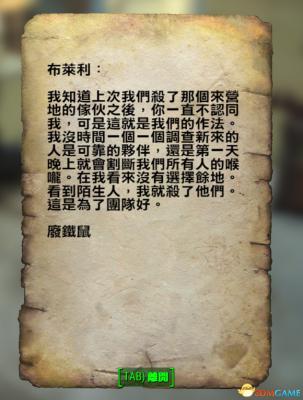 布萊利：
我知道上次我們殺了那個來營
地的傢伙之後，你一直不認同
我，可是這就是我們的作法。
我沒時間一個一個調查新來的
人是可靠的夥伴，還是第一天
晚上就會割斷我們所有人的喉
嚨。在我看來沒有選擇餘地。
看到陌生人，我就殺了他們。
這是為了團隊好。
廢鐵鼠
[TAB] 離開
3DMGAME